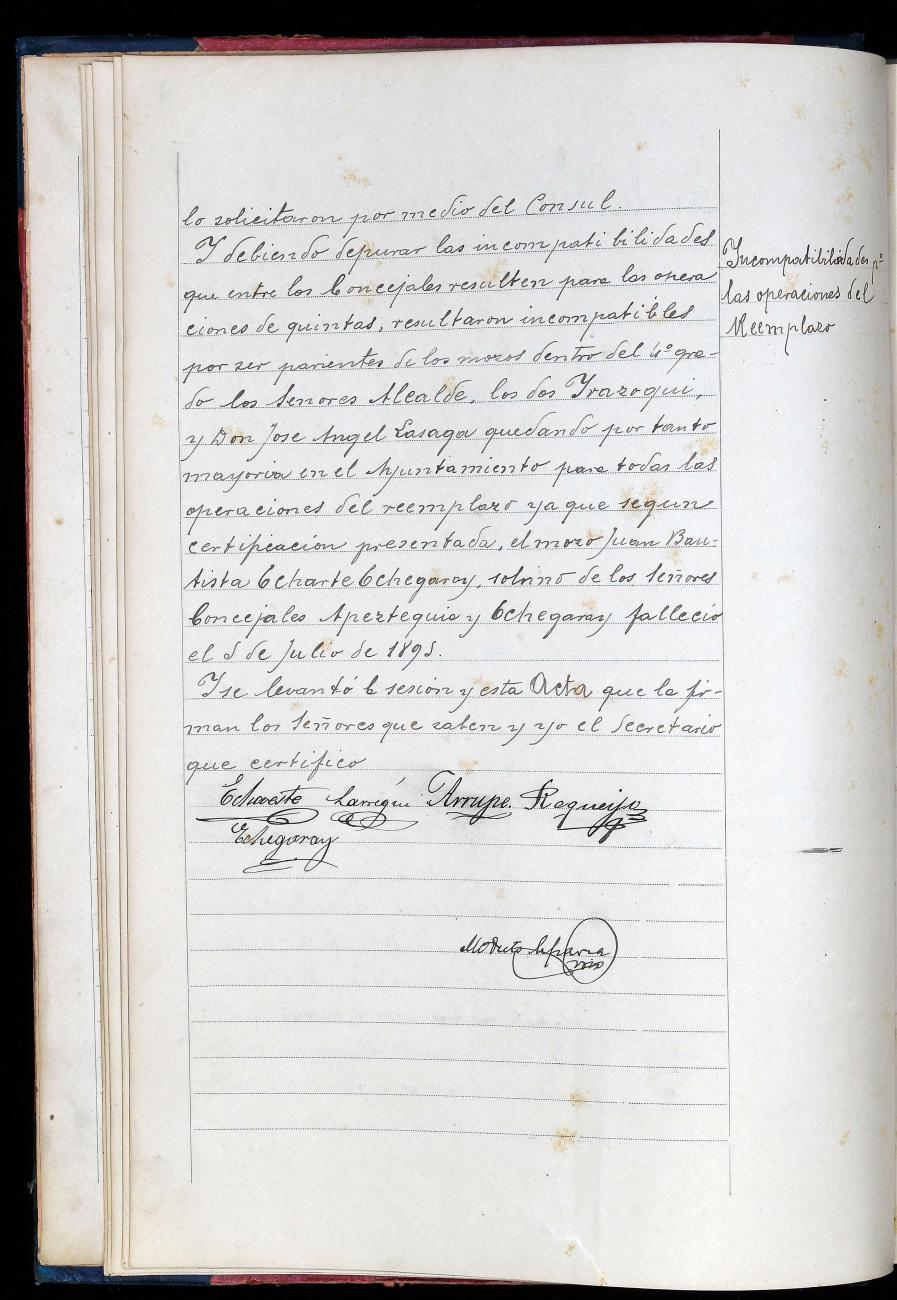 lo solicitaron por medio del Consul.
Y debiendo depurar las incompatibilidades
que entre los Concejales resulten para las opera
ciones de quintas, resultaron incompatibles
por ser parientes de los mozos dentro del 4º gra-
do los Señores Alcalde, los dos Yrazoqui,
y Don Jose Angel Lasaga quedando por tanto
mayoria en el Ayuntamiento para todas las
operaciones del reemplazo ya que segun
certificacion presentada, el mozo Juan Bau-
tista Echarte Echegaray, sobrino de los Señores
Concejales Apeztequia y Echegaray fallecio
el 5 de Julio de 1895.
Y se levantó la sesión y esta Acta que la fir-
man los Señores que saben y yo el Secretario
que certifico
Incompatibilidades pª
las operaciones del
Reemplazo
Echarte Larregui Arrupe. Requeijo
Echegaray
Modesto